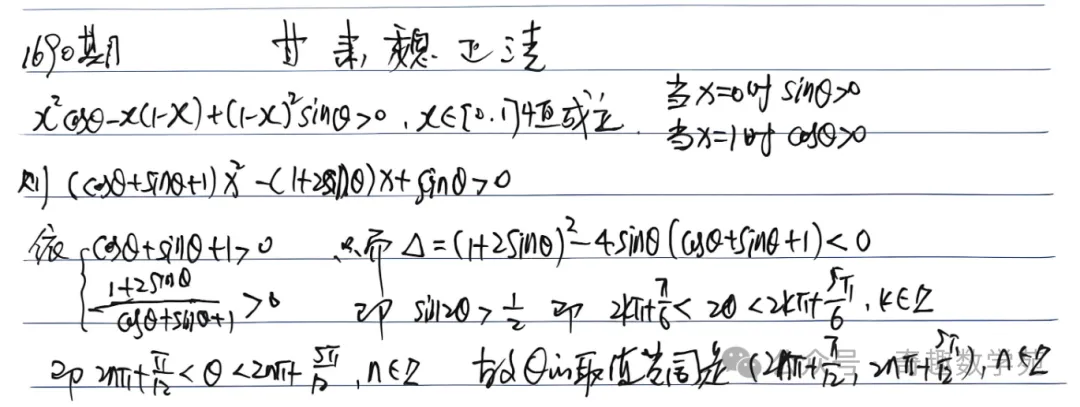 1690期 甘肃 魏正清
x²cosθ-x(1-x)+(1-x)²sinθ>0,x∈[0.1]恒成立. 当x=0时 sinθ>0
当x=1时 cosθ>0
则 (cosθ+sinθ+1)x²-(1+2sinθ)x+sinθ>0
{cosθ+sinθ+1>0 从而 Δ=(1+2sinθ)²-4sinθ(cosθ+sinθ+1)<0
(1+2sinθ)/(cosθ+sinθ+1)>0 即 sin2θ>1/2 即 2kπ+π/6<2θ<2kπ+5π/6,k∈Z
即 2nπ+π/12<θ<2nπ+5π/12,n∈Z 故θ的取值范围是(2nπ+π/12,2nπ+5π/12),n∈Z
公众号·奇趣数学苑